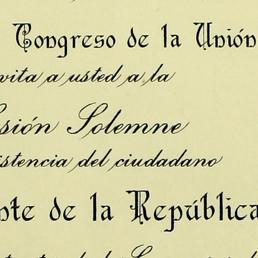 Congreso de la Unión
vita a usted a la
sión Solemne
istencia del ciudadano
nte de la República